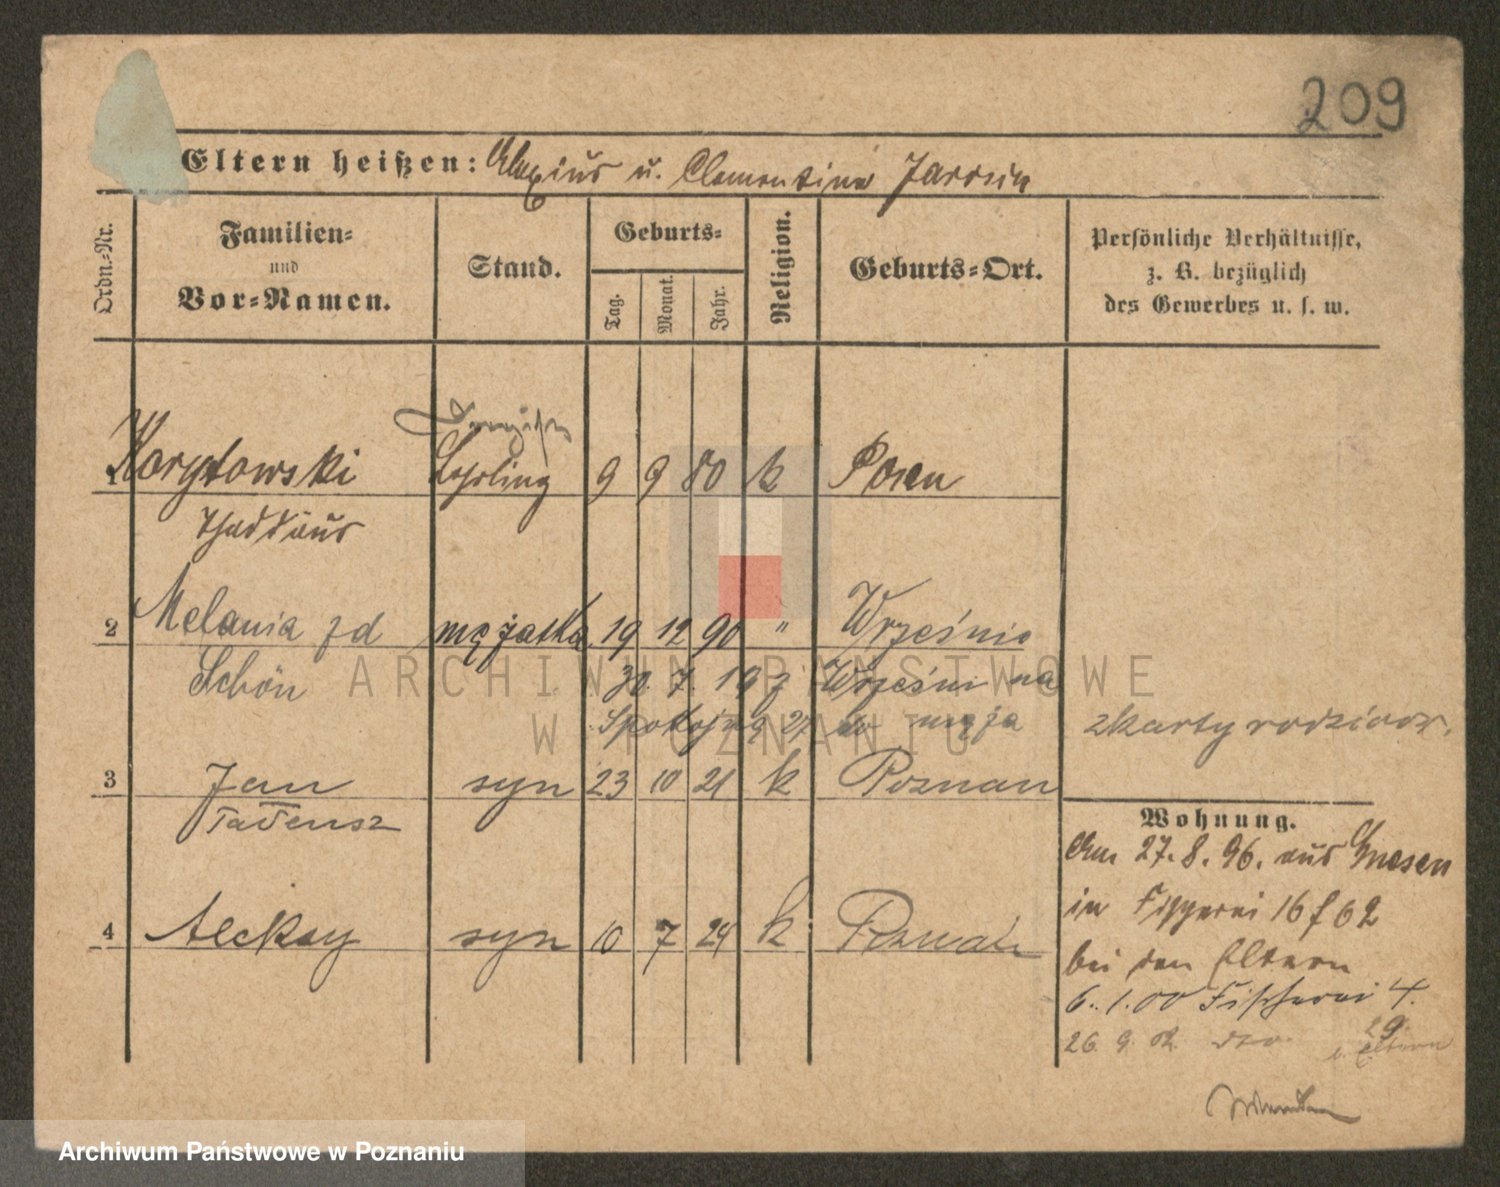 209
Eltern heißen: Alexius u. Clementina
Ordn.-Nr.
Familien- und Vor-Namen.
Stand.
Geburts-
Tag.
Monat.
Jahr.
Religion.
Geburts-Ort.
Persönliche Verhältnisse,
z. B. bezüglich
des Gewerbes u. s. w.
1 Korytowski Lehrling 9 9 80 k Posen
Thaddäus
2 Melania zd mężatka 19 12 90 " Września
Schön 30. 7. Wrześni na
Spokojną 27 do męża
z karty rodzinn.
3 Jan syn 23 10 21 k Poznań
Tadeusz
4 syn 10 7 24 k Poznań
Wohnung.
Am 27.8.96. aus Gnesen
in Fischerei 16 f 62
bei den Eltern
6. 1.00 Fischerei 4.
26. 9. 02 dto. 29.
b. Eltern
ARCHIWUM PAŃSTWOWE
W POZNANIU
Archiwum Państwowe w Poznaniu